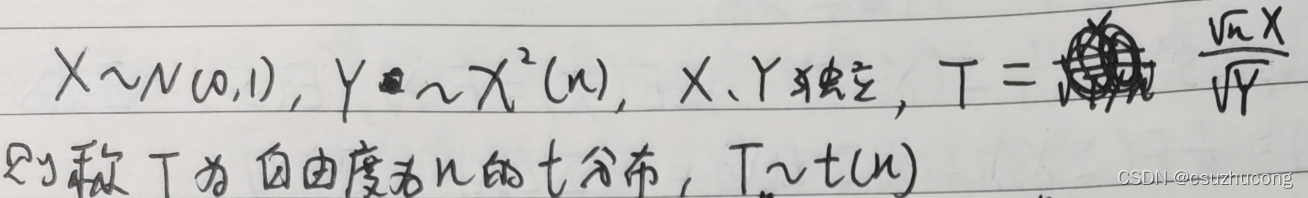 X~N(0,1), Y~χ²(n), X、Y独立, T = √n X / √Y
则称T为自由度为n的t分布, T~t(n)
CSDN @csuzhucong